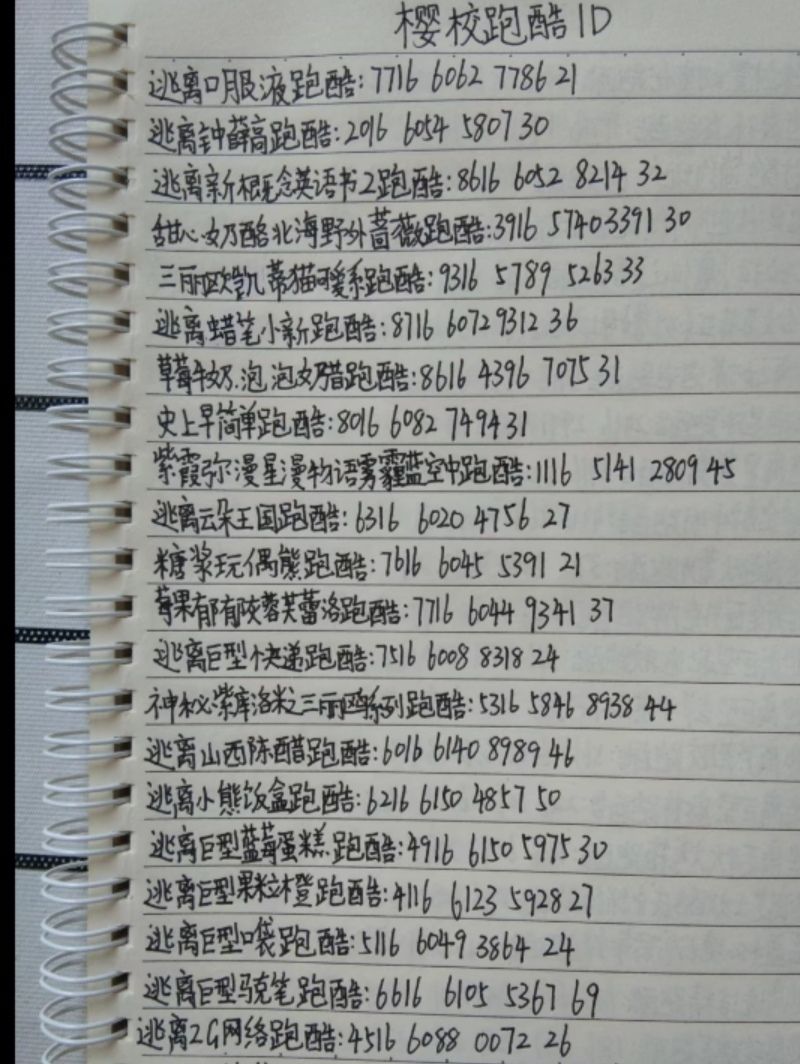 樱校跑酷ID
逃离口服液跑酷:7716 6062 7786 21
逃离钟薛高跑酷:2016 6054 5807 30
逃离新概念英语书2跑酷:8616 6052 8214 32
甜心奶酪北海野外蔷薇跑酷:3916 5740 3391 30
三丽欧凯蒂猫可爱系跑酷:9316 5789 5263 33
逃离蜡笔小新跑酷:8716 6072 9312 36
草莓牛奶泡泡奶昔跑酷:8616 4396 7075 31
史上早简单跑酷:8016 6082 7494 31
紫霞弥漫星漫物语雾霾蓝空中跑酷:1116 5141 2809 45
逃离云朵王国跑酷:6316 6020 4756 27
糖浆玩偶熊跑酷:7616 6045 5391 21
莓果郁郁陵蓉芙蕾洛跑酷:7716 6044 9341 37
逃离巨型快递跑酷:7516 6008 8318 24
神秘紫库洛米三丽鸥系列跑酷:5316 5846 8938 44
逃离山西陈醋跑酷:6016 6140 8989 46
逃离小熊饭盒跑酷:6216 6150 4857 50
逃离巨型蓝莓蛋糕跑酷:4916 6150 5975 30
逃离巨型果粒橙跑酷:4116 6123 5928 27
逃离巨型口袋跑酷:5116 6049 3864 24
逃离巨型马克笔跑酷:6616 6105 5367 69
逃离2G网络跑酷:4516 6088 0072 26